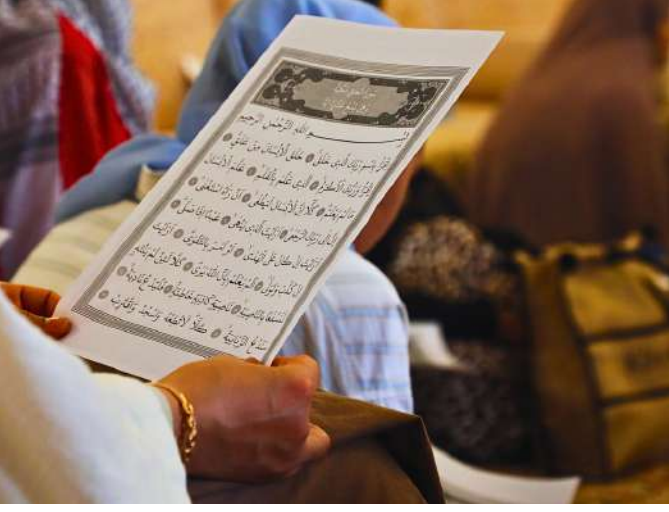 بِسْمِ اللهِ الرَّحْمٰنِ الرَّحِيمِ
اِقْرَأْ بِاسْمِ رَبِّكَ الَّذِى خَلَقَ ۝ خَلَقَ الْاِنْسَانَ مِنْ عَلَقٍ ۝
اِقْرَأْ وَرَبُّكَ الْاَكْرَمُ ۝ اَلَّذِى عَلَّمَ بِالْقَلَمِ ۝ عَلَّمَ الْاِنْسَانَ
مَا لَمْ يَعْلَمْ ۝ كَلَّا اِنَّ الْاِنْسَانَ لَيَطْغٰى ۝ اَنْ رَاٰهُ اسْتَغْنٰى ۝
اِنَّ اِلٰى رَبِّكَ الرُّجْعٰى ۝ اَرَاَيْتَ الَّذِى يَنْهٰى ۝ عَبْدًا اِذَا صَلّٰى ۝
اَرَاَيْتَ اِنْ كَانَ عَلَى الْهُدٰى ۝ اَوْ اَمَرَ بِالتَّقْوٰى ۝ اَرَاَيْتَ
اِنْ كَذَّبَ وَتَوَلّٰى ۝ اَلَمْ يَعْلَمْ بِاَنَّ اللهَ يَرٰى ۝ كَلَّا لَئِنْ لَمْ يَنْتَهِ
لَنَسْفَعًا بِالنَّاصِيَةِ ۝ نَاصِيَةٍ كَاذِبَةٍ خَاطِئَةٍ ۝ فَلْيَدْعُ نَادِيَهُ ۝
سَنَدْعُ الزَّبَانِيَةَ ۝ كَلَّا لَا تُطِعْهُ وَاسْجُدْ وَاقْتَرِبْ ۝